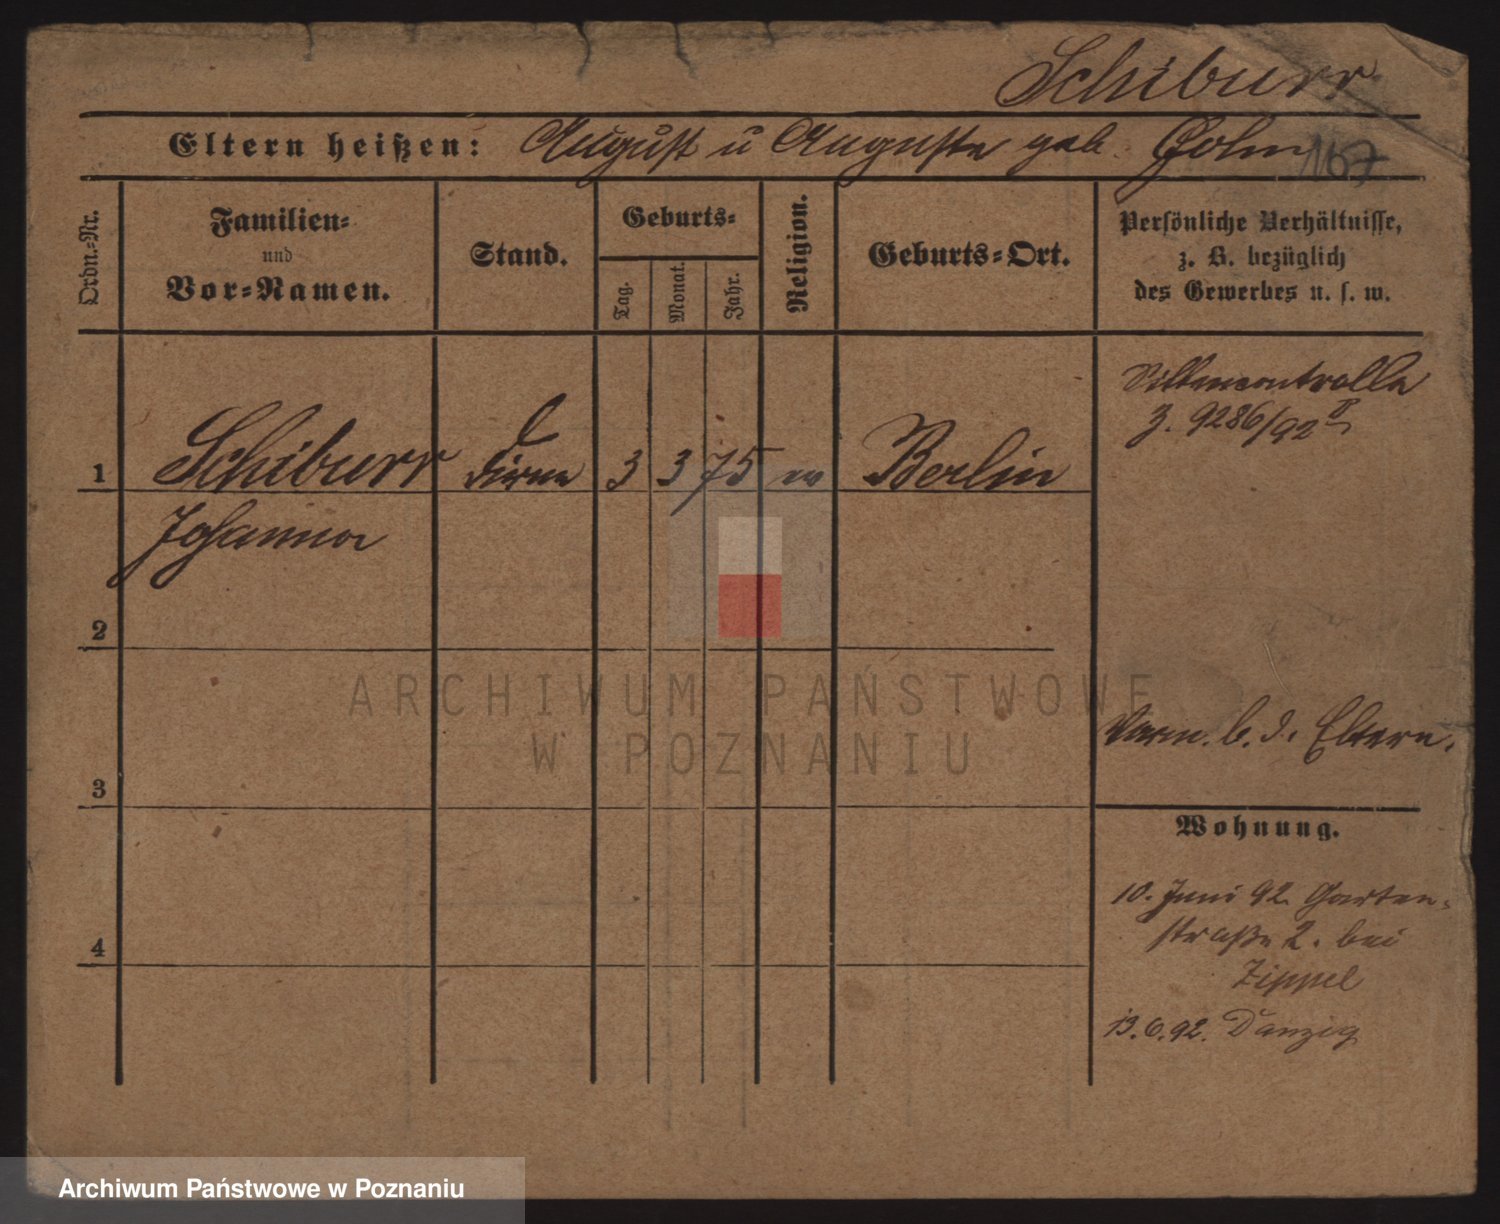 Schiburr
Eltern heißen: August u Auguste geb. Gohn
167
Ordn.-Nr.
Familien-
und
Vor-Namen.
Stand.
Geburts-
Tag.
Monat.
Jahr.
Religion.
Geburts-Ort.
Persönliche Verhältnisse,
z. B. bezüglich
des Gewerbes u. s. w.
Sittencontrolle
J. 9286/92 II
1 Schiburr Dirne 3 3 75 ev Berlin
Johanna
2
Verm. b. d. Eltern.
3
Wohnung.
10. Juni 92. Garten-
straße 2. bei
Zippel
4
13.6.92. Danzig
ARCHIWUM PAŃSTWOWE
W POZNANIU
Archiwum Państwowe w Poznaniu